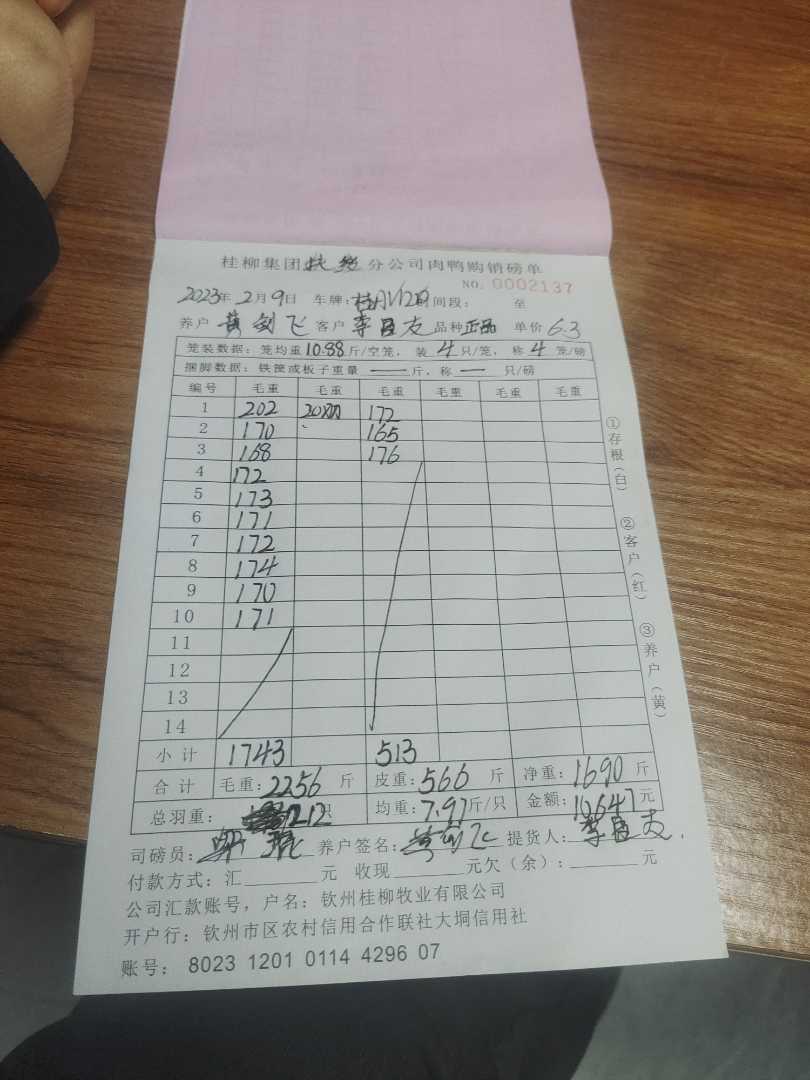 桂柳集团 分公司肉鸭购销磅单
NO. 0002137
2023年 2月9日 车牌: 时间段: 至
养户 黄剑飞 客户 李昌友 品种 正品 单价 6.3
笼装数据: 笼均重10.88斤/空笼, 装 4 只/笼, 称 4 笼/磅
捆脚数据: 铁筐或板子重量 —— 斤, 称 — 只/磅
编号 毛重 毛重 毛重 毛重 毛重 毛重
1 202 172
2 170 165
3 168 176
4 172
5 173
6 171
7 172
8 174
9 170
10 171
11
12
13
14
小计 1743 513
合计 毛重: 2256 斤 皮重: 566 斤 净重: 1690 斤
总羽重: 212 只 均重: 7.97斤/只 金额: 10647元
司磅员: 养户签名: 提货人: 李昌友
付款方式: 汇______元 收现______元欠(余):______元
公司汇款账号, 户名: 钦州桂柳牧业有限公司
开户行: 钦州市区农村信用合作联社大垌信用社
账号: 8023 1201 0114 4296 07
①存根(白)
②客户(红)
③养户(黄)